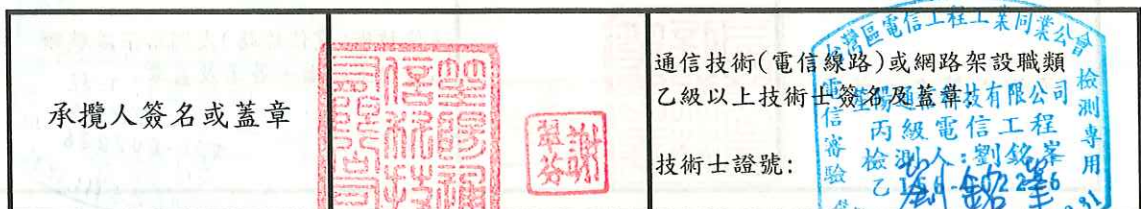 承攬人簽名或蓋章
謝翠芬
通信技術(電信線路)或網路架設職類
乙級以上技術士簽名及蓋章:
技術士證號:
台灣區電信工程工業同業公會
通信科技有限公司
丙級電信工程
檢測人:劉銘峯
電信審驗
檢測專用
劉銘峯